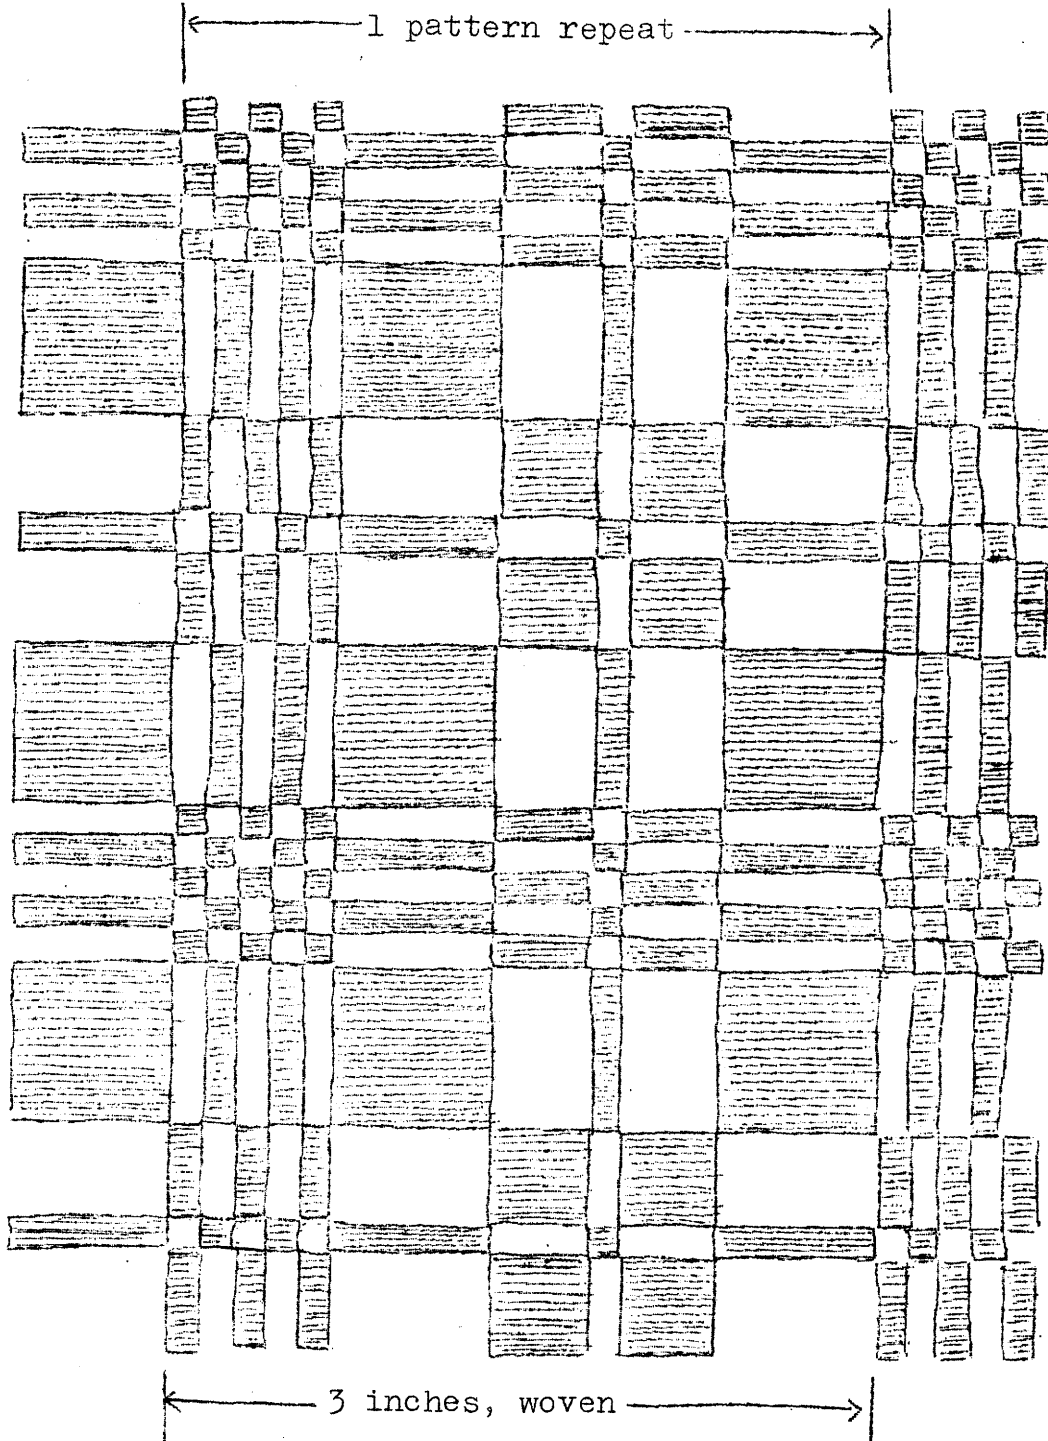 1 pattern repeat
3 inches, woven